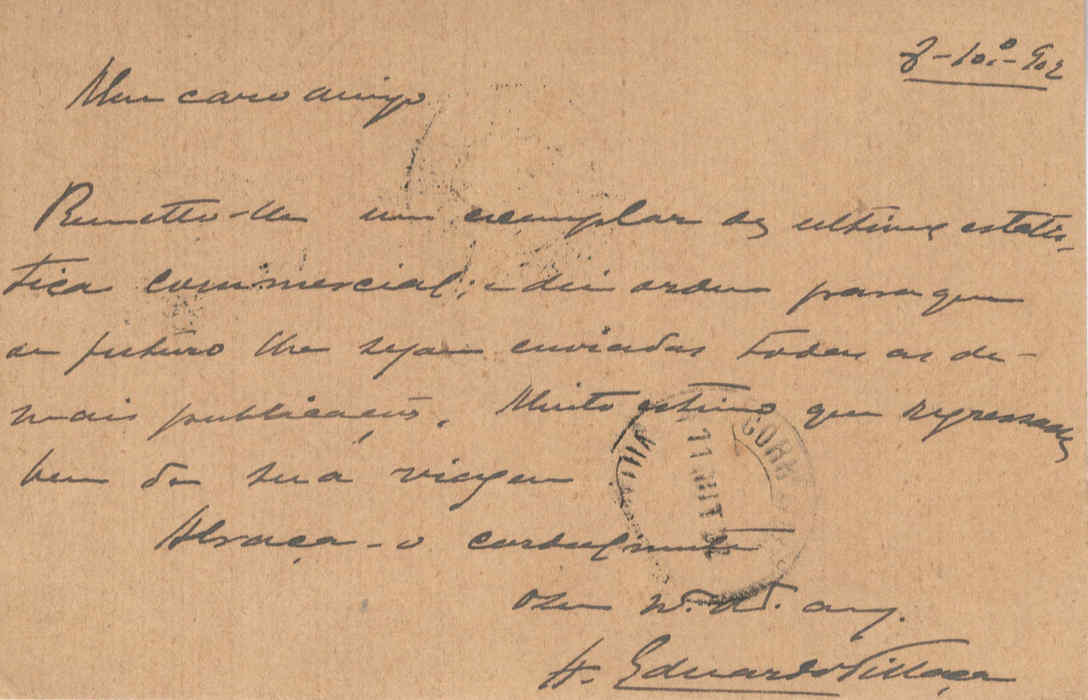 8-10º-902
Meu caro amigo
Remetto-lhe um exemplar da ultima estatis-
tica commercial; e dei ordem para que
de futuro lhe sejam enviadas todas as de-
mais publicações. Muito estimo que regressasse
bem da sua viagem
Abraça-o cordealmente
o seu am.
Eduardo Villaça
CORR
11 OUT